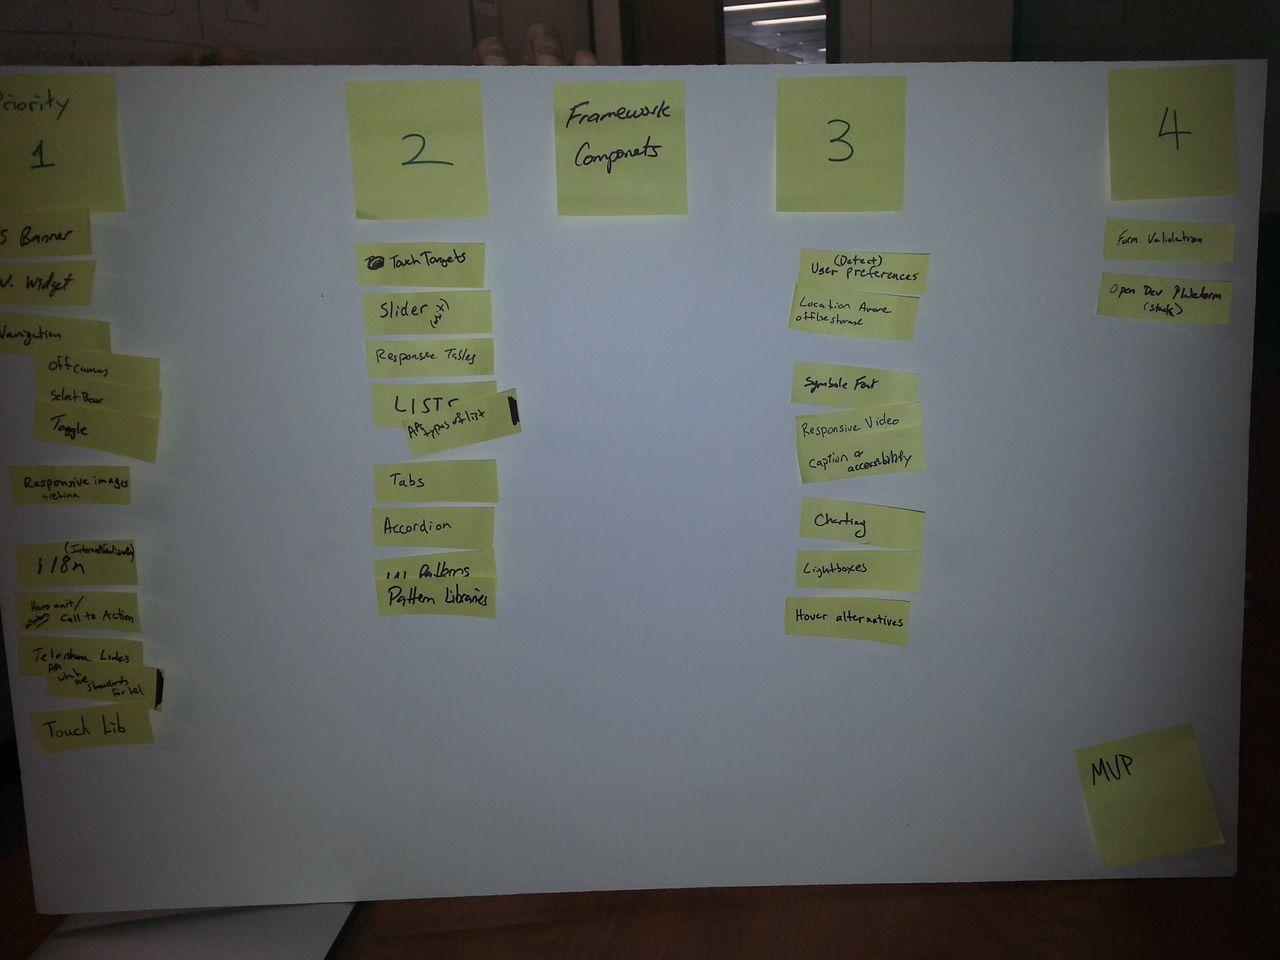 Priority
1
S Banner
v. Widget
Navigation
Off canvas
Select Box
Toggle
Responsive images
+retina
(Internationalization)
i18n
Hero unit/
Call to Action
Telephone Links
API
what are
standards
for tel
Touch Lib
2
Touch Targets
Slider
Responsive Tables
LISTS
API types of list
Tabs
Accordion
UI Patterns
Pattern Libraries
Framework
Componets
3
(Detect)
User preferences
Location Aware
offline storage
Symbole Font
Responsive Video
Caption &
accessibility
Charting
Lightboxes
Hover alternatives
4
Form Validation
Open Dev Plateform
(stack)
MVP